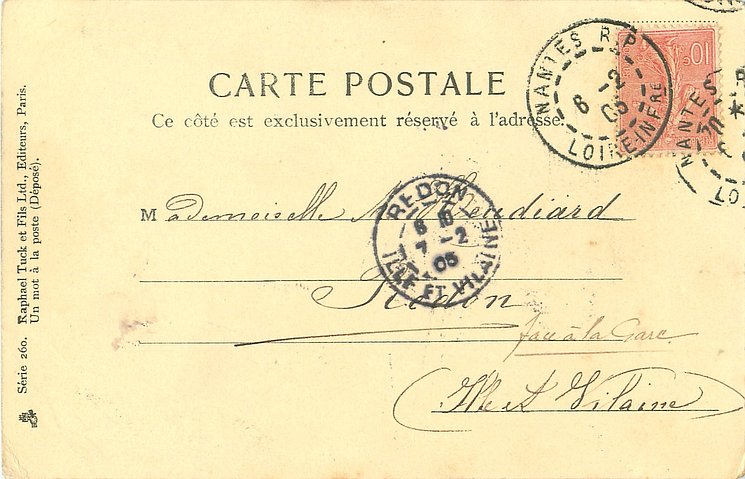 CARTE POSTALE
Ce côté est exclusivement réservé à l'adresse.
NANTES R.P.
6 -2
05
LOIRE-INFRE
10c
NANTES
LO
REDON
6 10
7 -2
05
ILLE ET VILAINE
Mademoiselle
Redon
face à la Gare
Ille et Vilaine
Série 260. Raphael Tuck et Fils Ltd., Editeurs, Paris.
Un mot à la poste (Déposé).